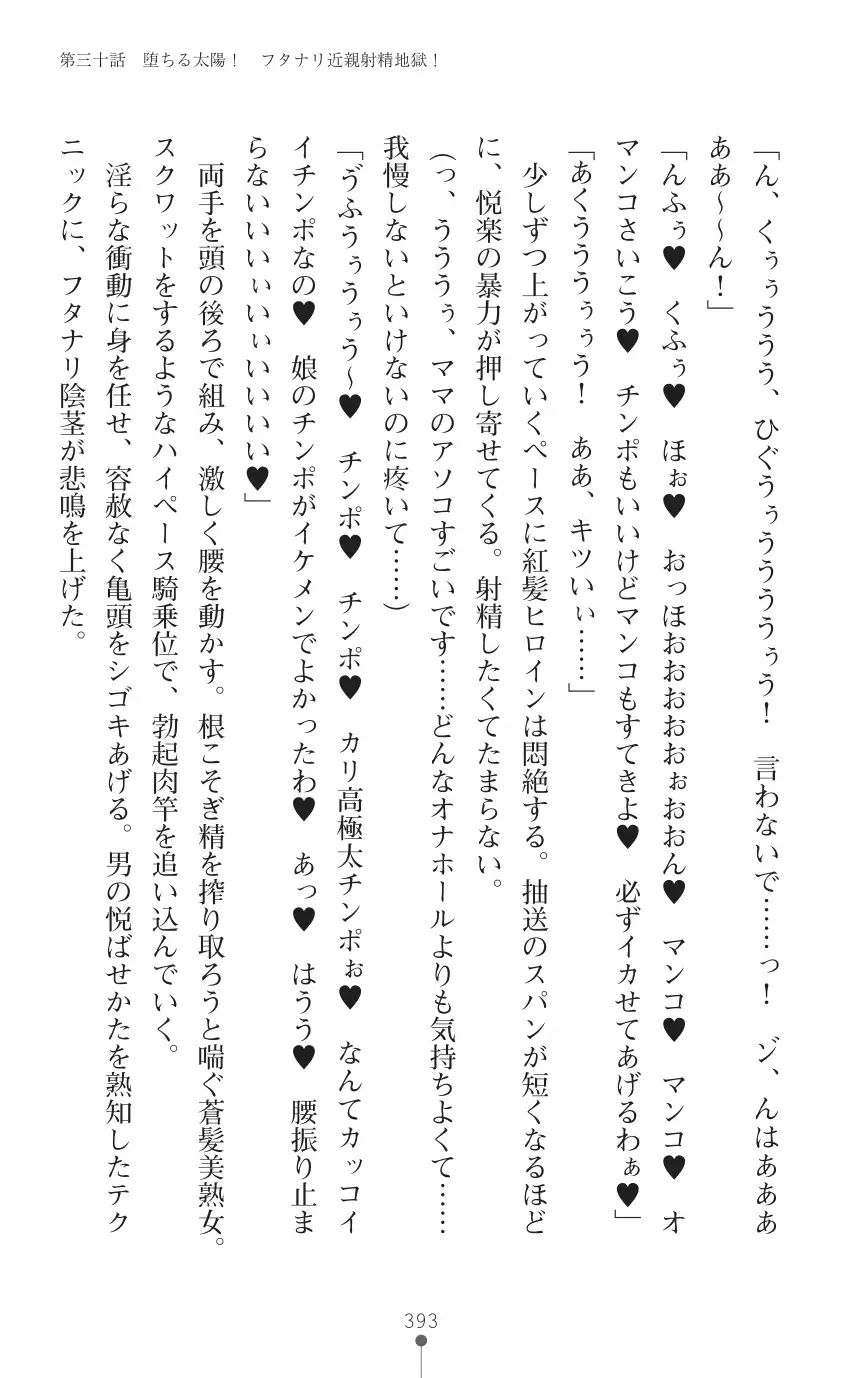 第三十話　堕ちる太陽！　フタナリ近親射精地獄！
「ん、くぅぅううう、ひぐうぅうううぅう！　言わないで……っ！　ゾ、んはあああ
ああ～～ん！」
「んふぅ♥　くふぅ♥　ほぉ♥　おっほおおおおおぉおおん♥　マンコ♥　マンコ♥　オ
マンコさいこう♥　チンポもいいけどマンコもすてきよ♥　必ずイカせてあげるわぁ♥」
「あくうううぅぅう！　ああ、キツいぃ……」
　少しずつ上がっていくペースに紅髪ヒロインは悶絶する。抽送のスパンが短くなるほど
に、悦楽の暴力が押し寄せてくる。射精したくてたまらない。
（っ、うううぅ、ママのアソコすごいです……どんなオナホールよりも気持ちよくて……
我慢しないといけないのに疼いて……）
「ゔふうぅうぅう～♥　チンポ♥　チンポ♥　カリ高極太チンポぉ♥　なんてカッコイ
イチンポなの♥　娘のチンポがイケメンでよかったわ♥　あっ♥　はうう♥　腰振り止ま
らないいいぃいぃいいいいい♥」
　両手を頭の後ろで組み、激しく腰を動かす。根こそぎ精を搾り取ろうと喘ぐ蒼髪美熟女。
スクワットをするようなハイペース騎乗位で、勃起肉竿を追い込んでいく。
　淫らな衝動に身を任せ、容赦なく亀頭をシゴキあげる。男の悦ばせかたを熟知したテク
ニックに、フタナリ陰茎が悲鳴を上げた。
393